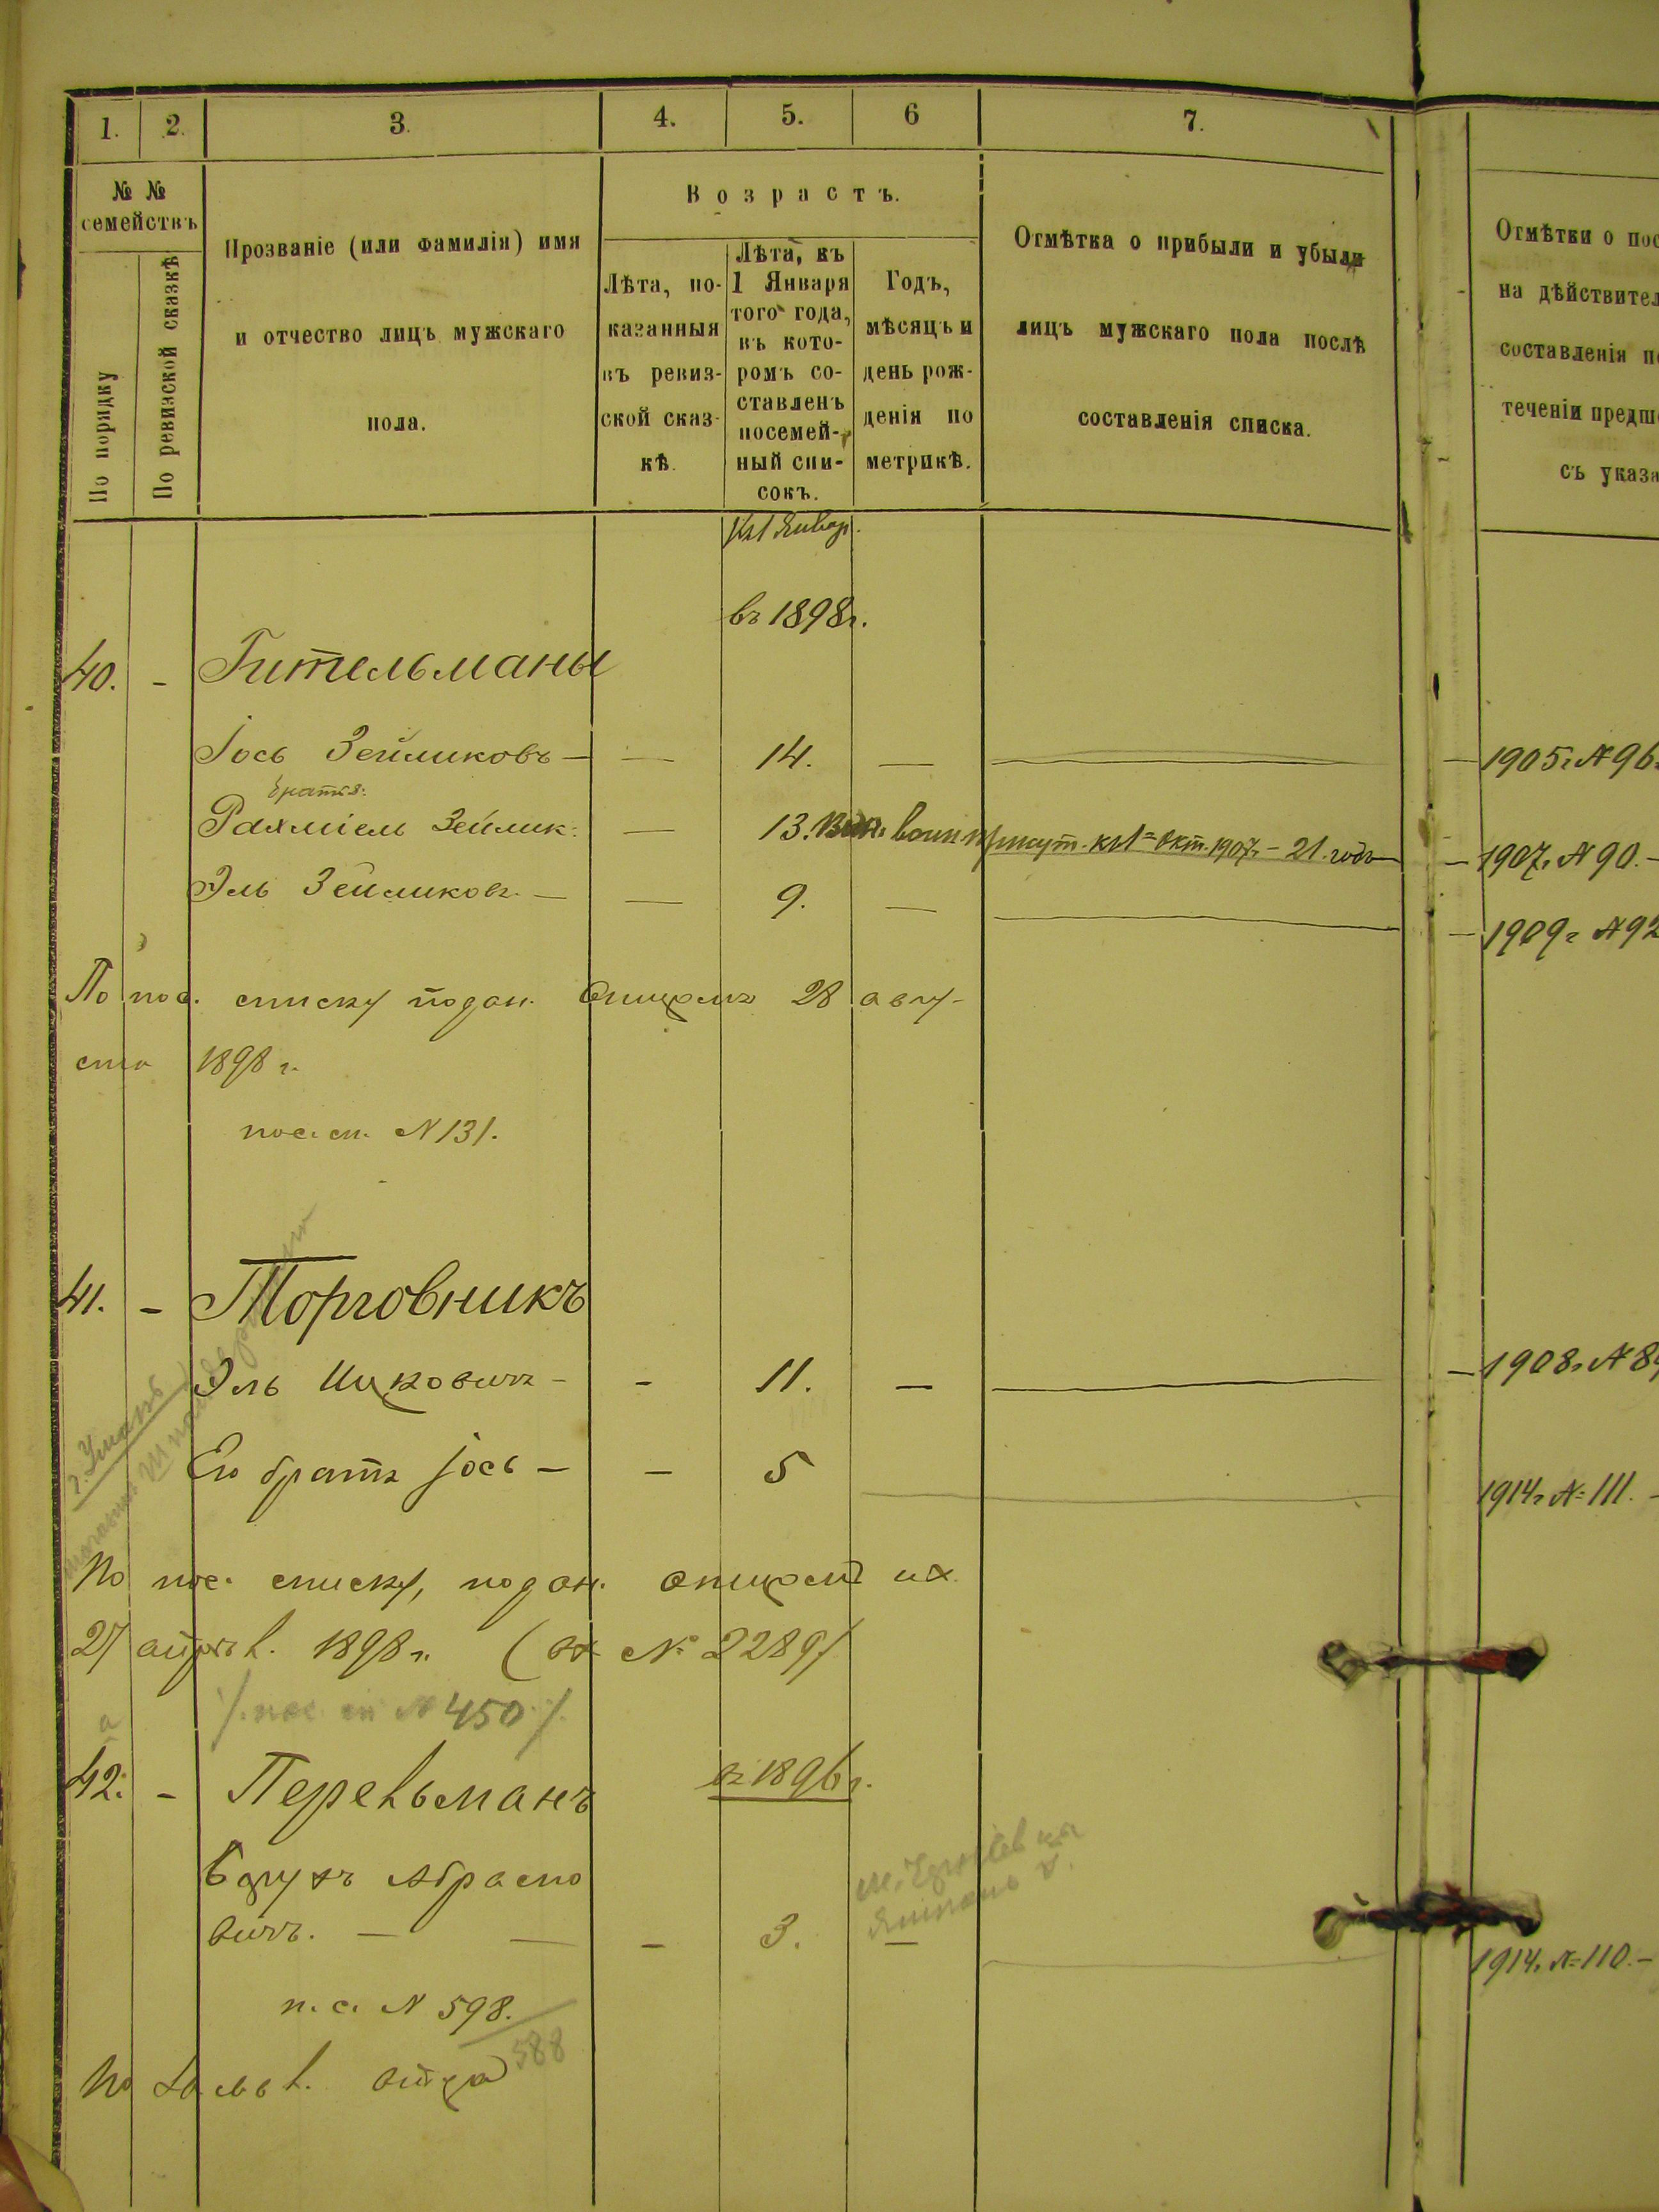 1. 2. 3. 4. 5. 6 7.
№ №
семействъ
По порядку
По ревизской сказкѣ
Прозваніе (или Фамилія) имя
и отчество лицъ мужскаго
пола.
Возрастъ.
Лѣта, по-
казанныя
въ ревиз-
ской сказ-
кѣ.
Лѣта, къ
1 Января
того года,
въ кото-
ромъ со-
ставленъ
посемей-
ный спи-
сокъ.
Годъ,
мѣсяцъ и
день рож-
денія по
метрикѣ.
Отмѣтка о прибыли и убыли
лицъ мужскаго пола послѣ
составленія списка.
Отмѣтки о пос
на дѣйствител
составленія п
теченіи предш
съ указа
въ 1898г.
40. - Гительманы
Іось Зейликовъ — — 14. — — 1905г. № 96
братья:
Рахміель Зейлик. — 13. воин. присут. къ 1 = Окт. 1907г. - 21. годъ — 1907г. № 90. -
Эль Зейликов. — — 9. — — 1909г № 92
По пос. списку подан. отцомъ 28 авгу-
ста 1898 г.
пос. сп. № 131.
41. - Торговникъ
Эль Ицковичъ - - 11. — — 1908г. № 8
Его братъ Іось — — 5 1914г № = 111. -
г. Умань
По пос. списку, подан. отцомъ их
27 апрѣл. 1898 г. (вх № 2289/
/. пос. сп № 450 ./
42. а - Перельманъ въ 1896г.
Барухъ Абрамо
вичъ. — — - 3. — 1914г. № = 110. -
п. с. № 598.
588
По отца